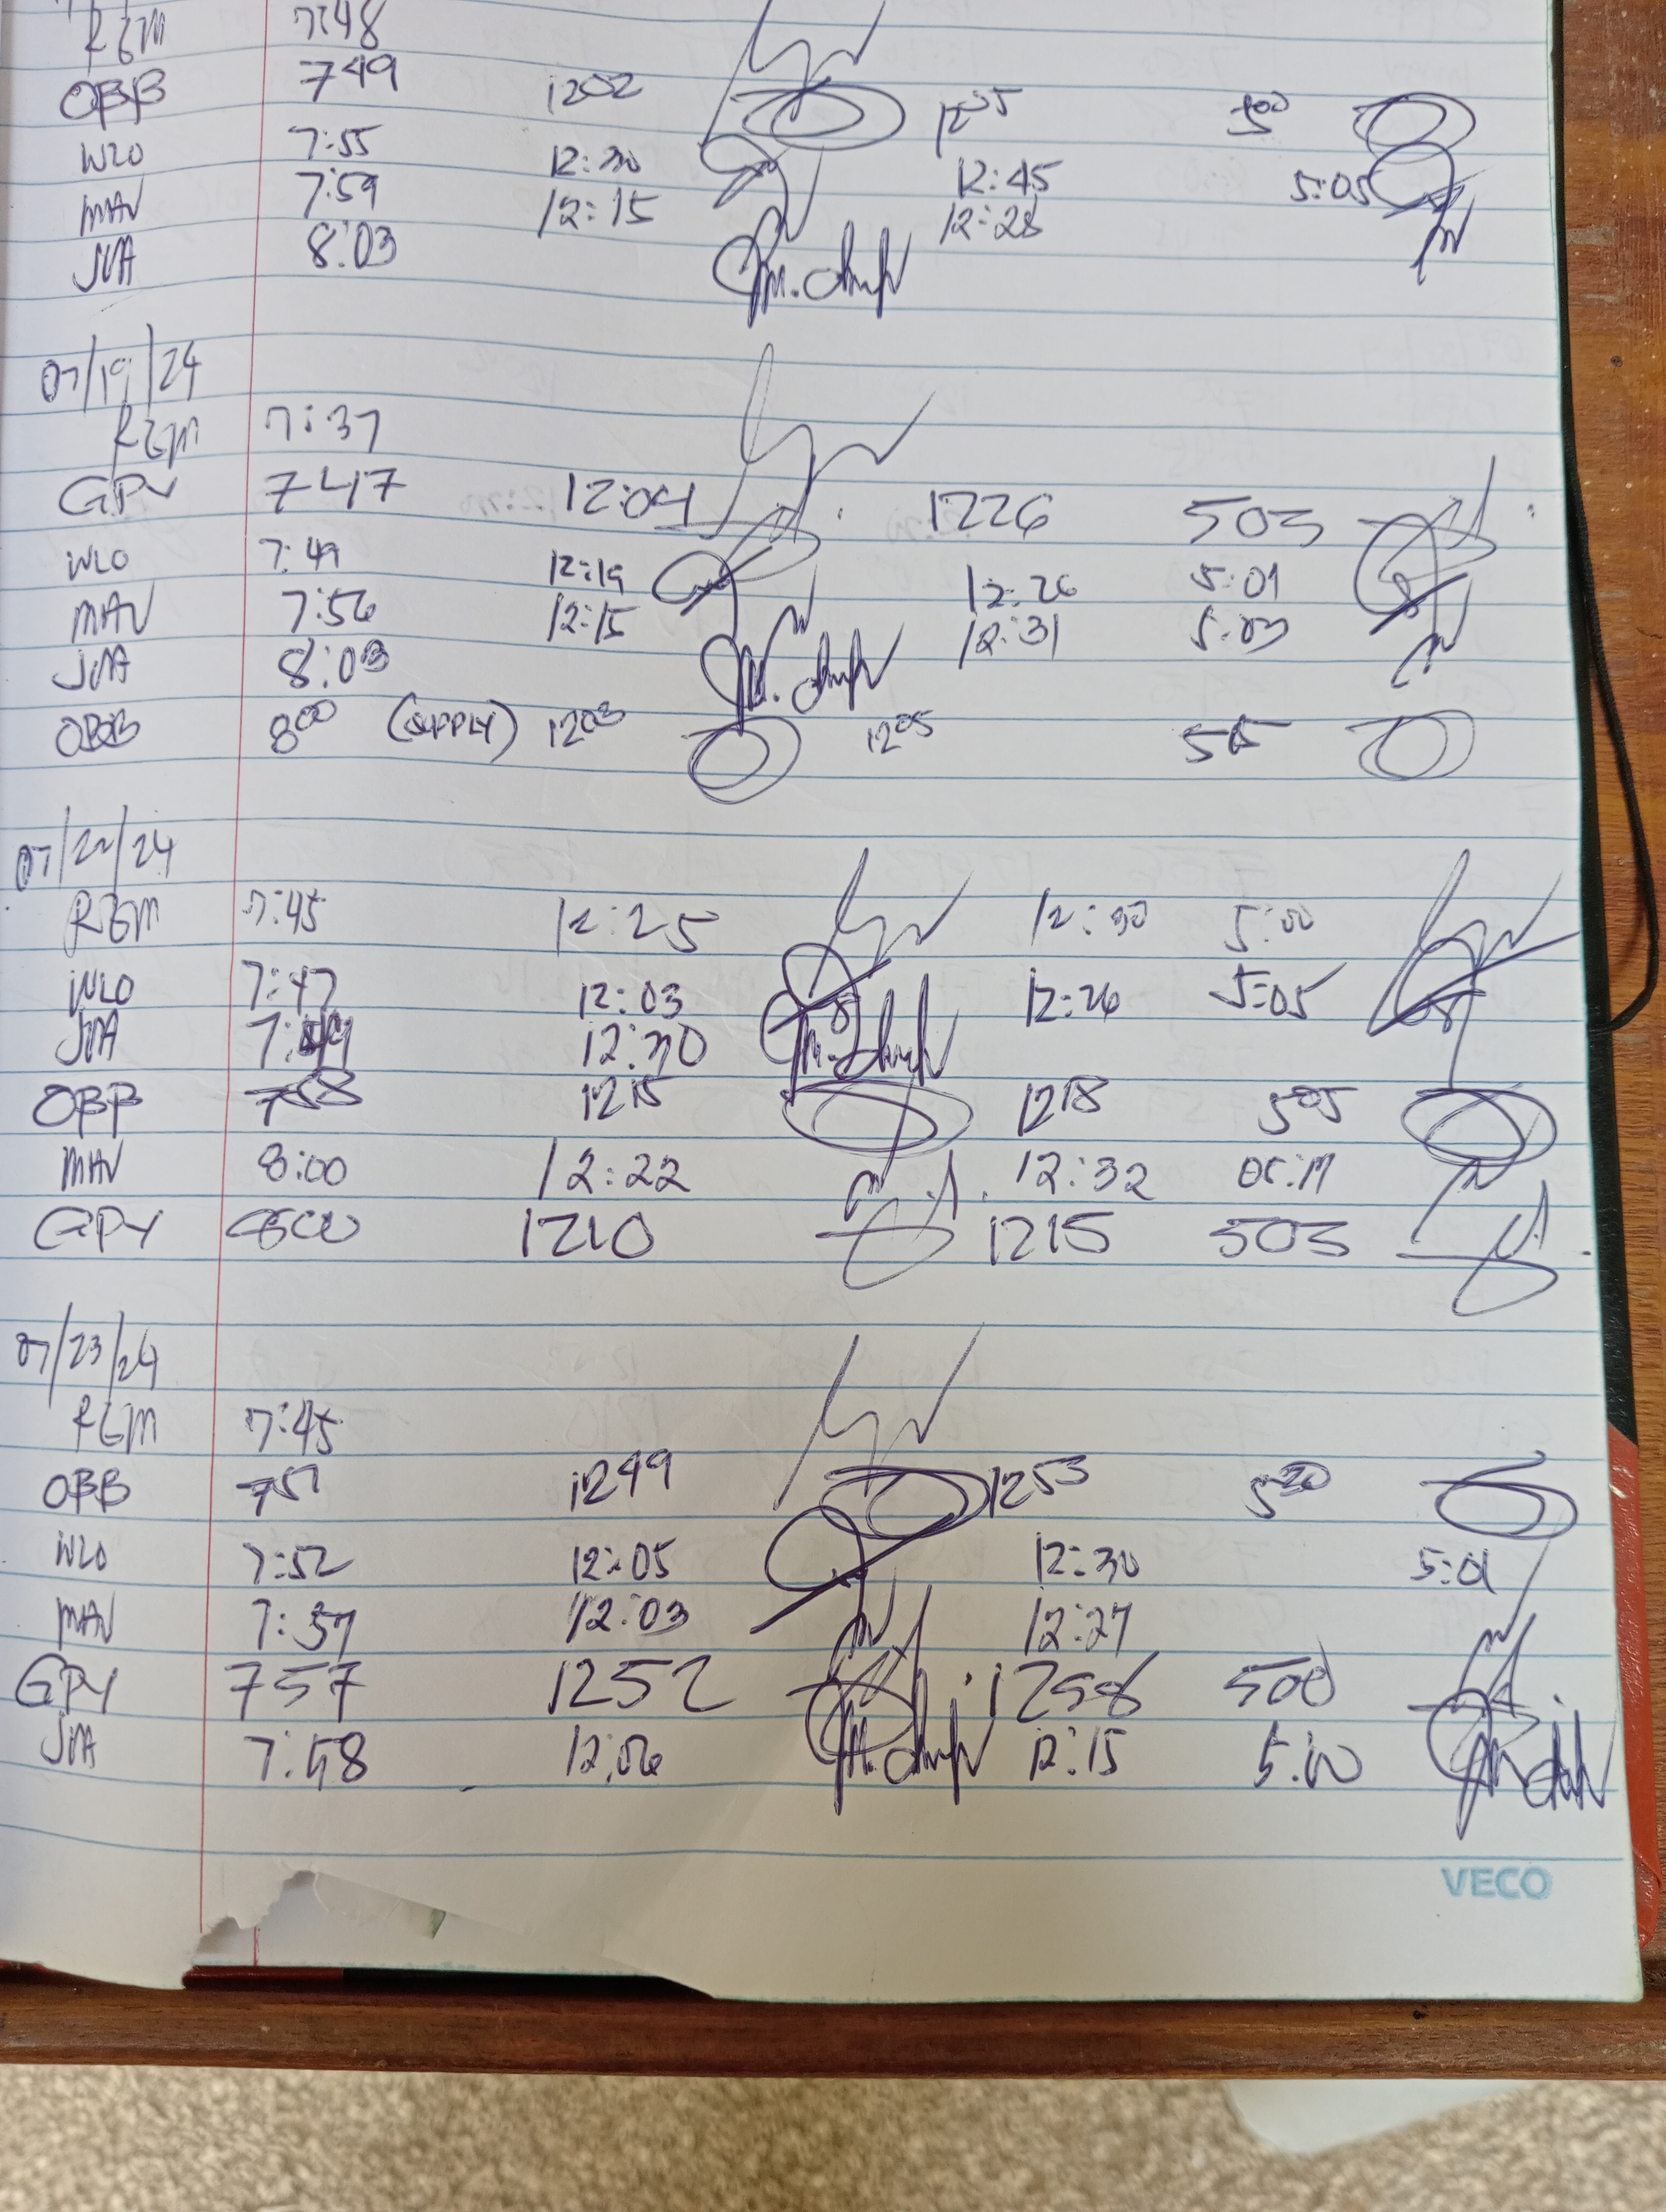 RGM 7:48
OBB 749 1202 1205 500
WLO 7:55 12:30 12:45 5:05
MAV 7:59 12:15 12:28
JMA 8:03
07/19/24
RGM 7:37
GPY 747 12:04 1226 503
WLO 7:49 12:19 12:26 5:01
MAV 7:56 12:15 12:31 5:03
JMA 8:03
OBB 800 (SUPPLY) 1203 1205 
07/22/24
RGM 7:45 12:25 12:30 5:00
WLO 7:47 12:03 12:26 5:05
JMA 12:30
OBB 758 1215 1218 505
MAV 8:00 12:22 12:32
GPY 800 1210 1215 503
07/23/24
RGM 7:45
OBB 757 1249 1253 520
WLO 7:52 12:05 12:30 5:01
MAV 7:57 12:03 12:27
GPY 757 1252 1258 500
JMA 7:58 12:06 12:15 5:00
VECO